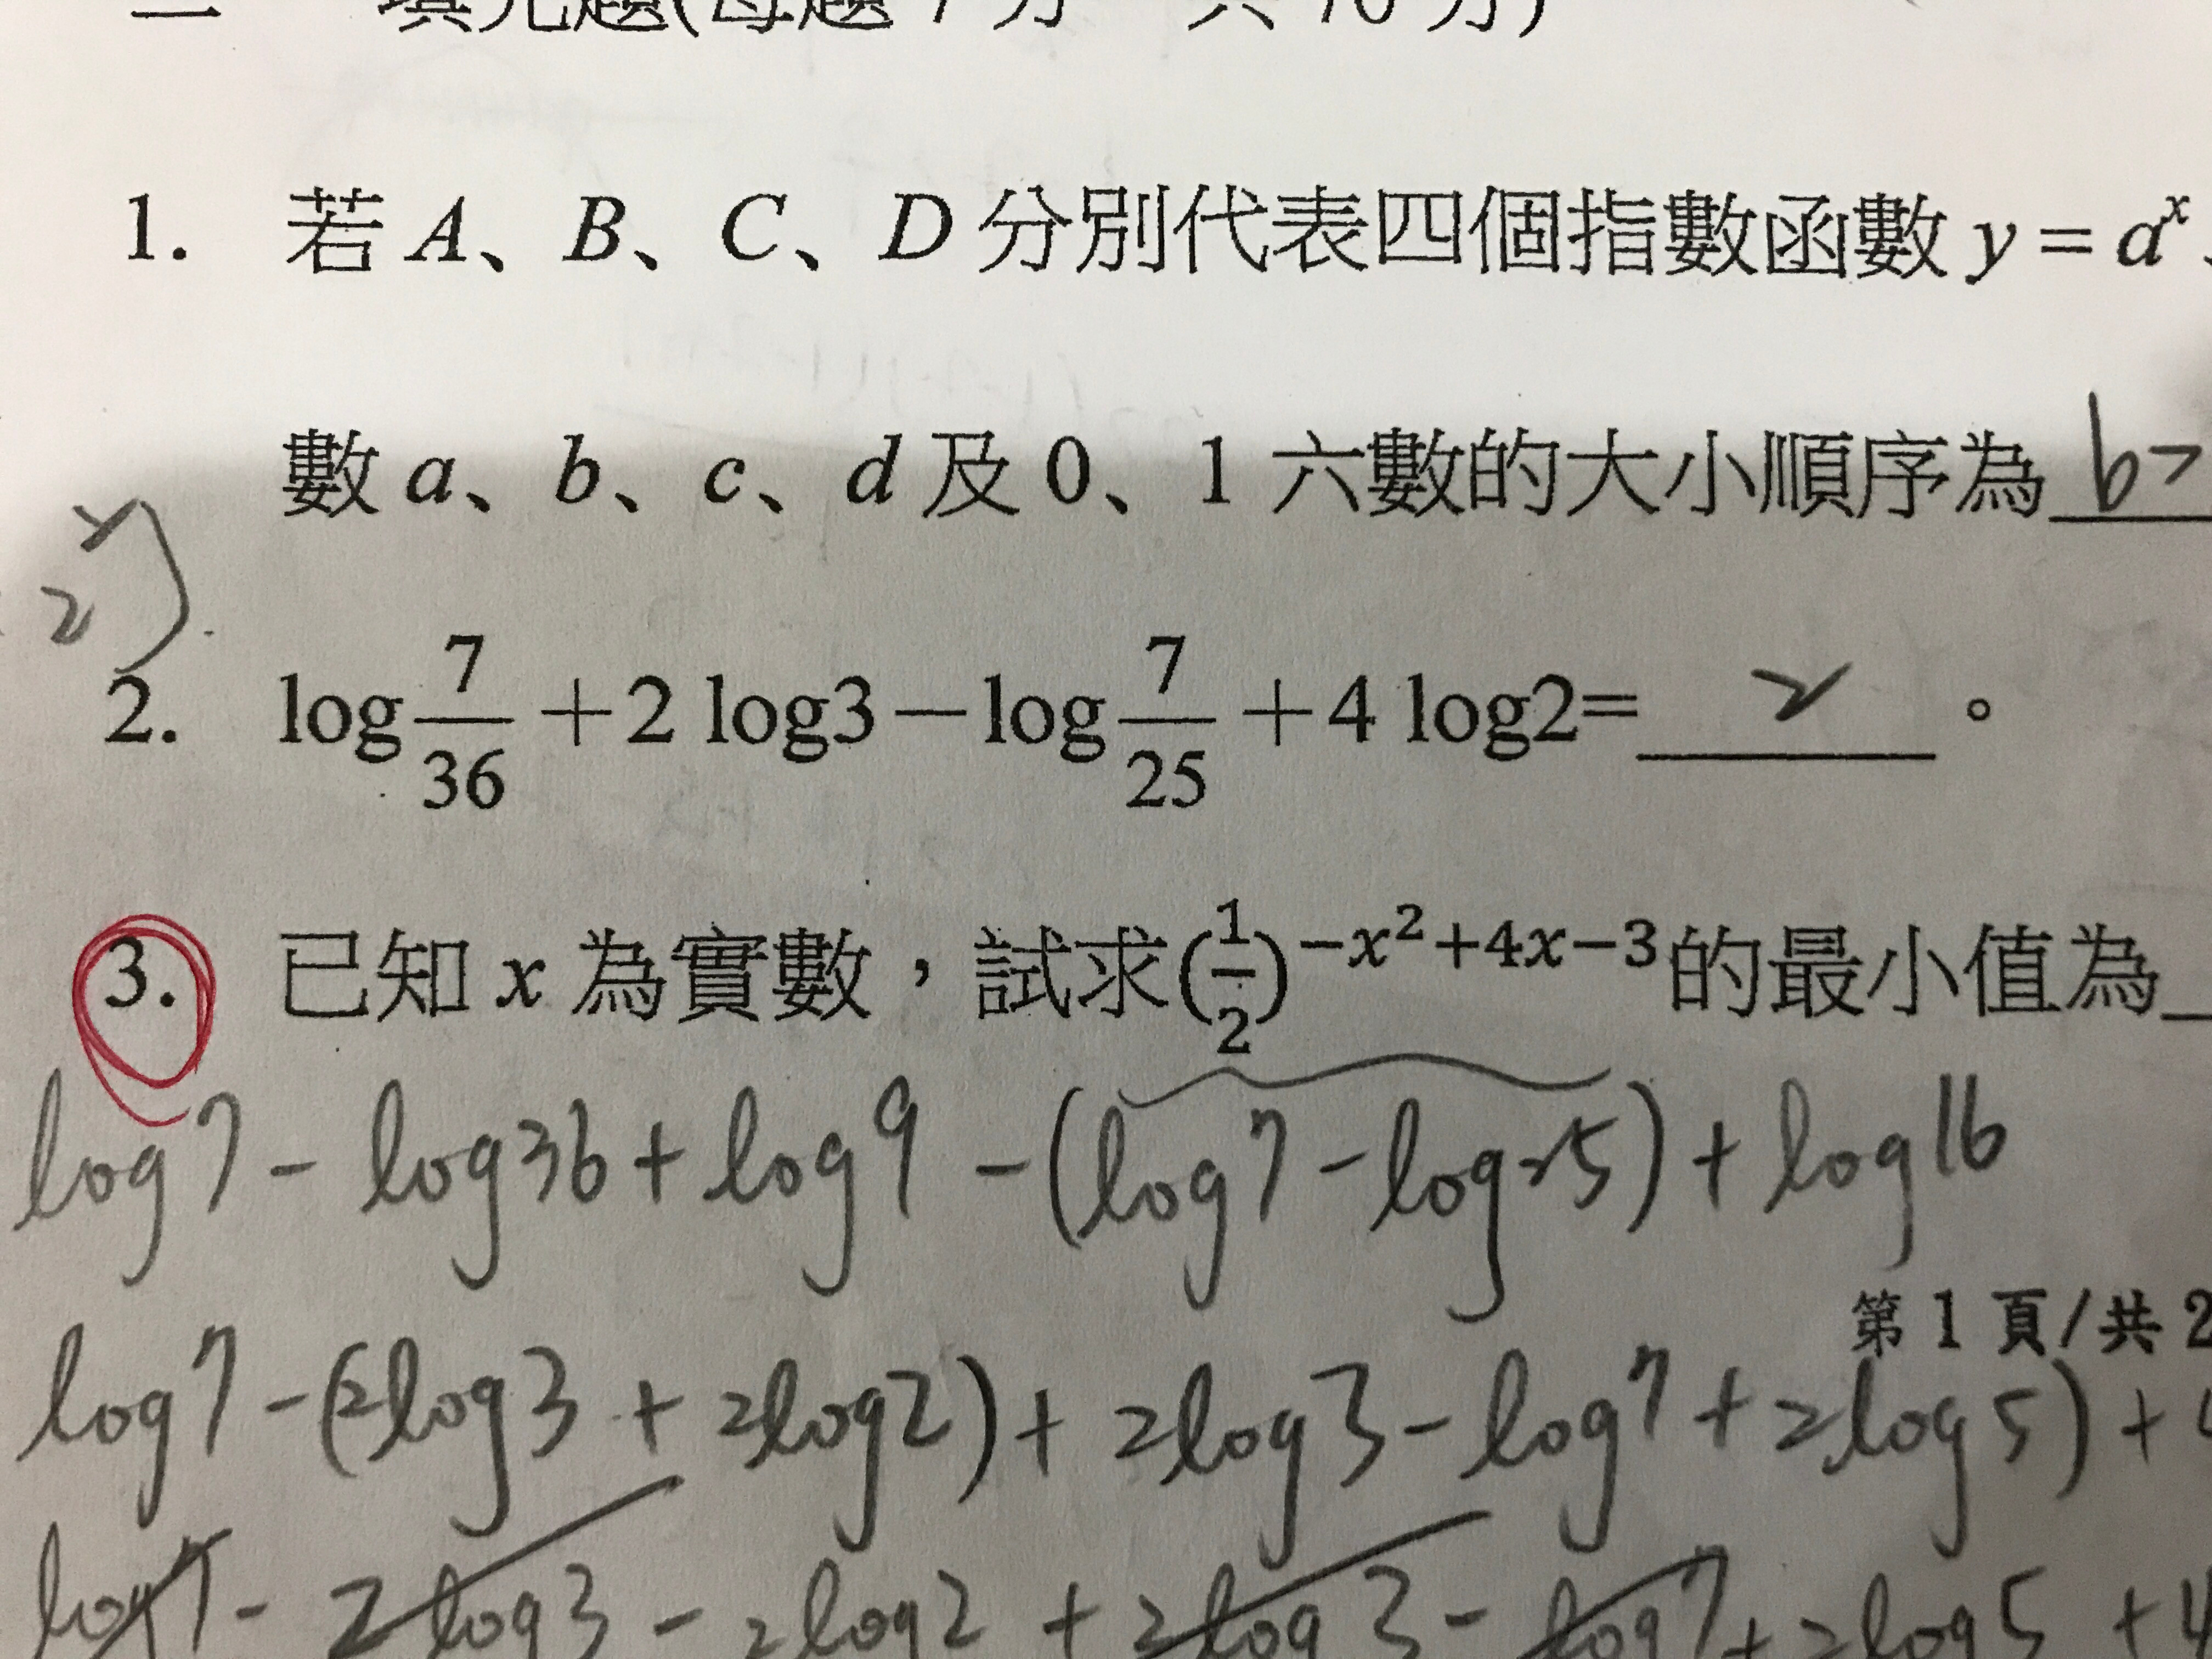 二 填充題(每題7分 共70分)
1. 若 A、B、C、D 分別代表四個指數函數 y = aˣ
數 a、b、c、d 及 0、1 六數的大小順序為 b>
2
2. log 7/36 + 2 log3 − log 7/25 + 4 log2= 2 。
3. 已知 x 為實數,試求(1/2)^−x²+4x−3 的最小值為
log7 - log36 + log9 - (log7 - log25) + log16
第 1 頁/共 2
log7 - (2log3 + 2log2) + 2log3 - log7 + 2log5) +
log7 - 2log3 - 2log2 + 2log3 - log7 + 2log5 + 4